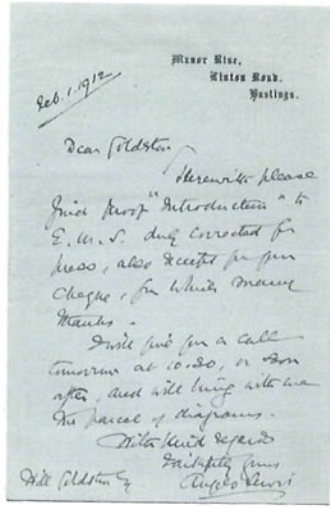 Manor Rise,
Linton Road.
Hastings.
Feb. 1. 1912.
Dear Goldston
Herewith please
find proof "Introduction" to
E. M. S. duly corrected for
press, also receipt for your
cheque, for which many
thanks.
I will give you a call
tomorrow at 10.30, or soon
after, and will bring with me
the parcel of diagrams.
With kind regards
Faithfully yours
Angelo Lewis
Will Goldston Esq